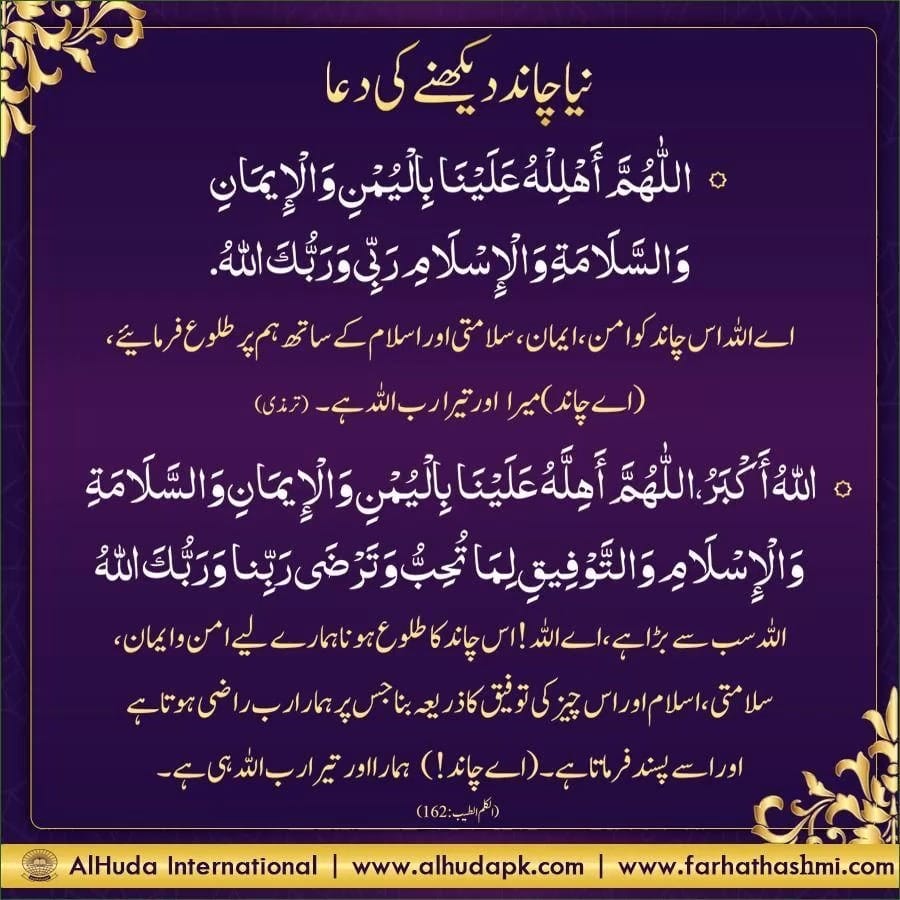 نیا چاند دیکھنے کی دعا
اَللّٰهُمَّ أَهْلِلْهُ عَلَيْنَا بِالْيُمْنِ وَالْإِيمَانِ
وَالسَّلَامَةِ وَالْإِسْلَامِ رَبِّي وَرَبُّكَ اللهُ.
اے اللہ اس چاند کو امن، ایمان، سلامتی اور اسلام کے ساتھ ہم پر طلوع فرمائیے،
(اے چاند) میرا اور تیرا رب اللہ ہے۔ (ترمذی)
اللهُ أَكْبَرُ، اَللّٰهُمَّ أَهِلَّهُ عَلَيْنَا بِالْيُمْنِ وَالْإِيمَانِ وَالسَّلَامَةِ
وَالْإِسْلَامِ وَالتَّوْفِيقِ لِمَا تُحِبُّ وَتَرْضَى رَبِّنا وَرَبُّكَ اللهُ
اللہ سب سے بڑا ہے، اے اللہ! اس چاند کا طلوع ہونا ہمارے لیے امن و ایمان،
سلامتی، اسلام اور اس چیز کی توفیق کا ذریعہ بنا جس پر ہمارا رب راضی ہوتا ہے
اور اسے پسند فرماتا ہے۔ (اے چاند!) ہمارا اور تیرا رب اللہ ہی ہے۔
(الکلم الطیب:162)
AlHuda International | www.alhudapk.com | www.farhathashmi.com